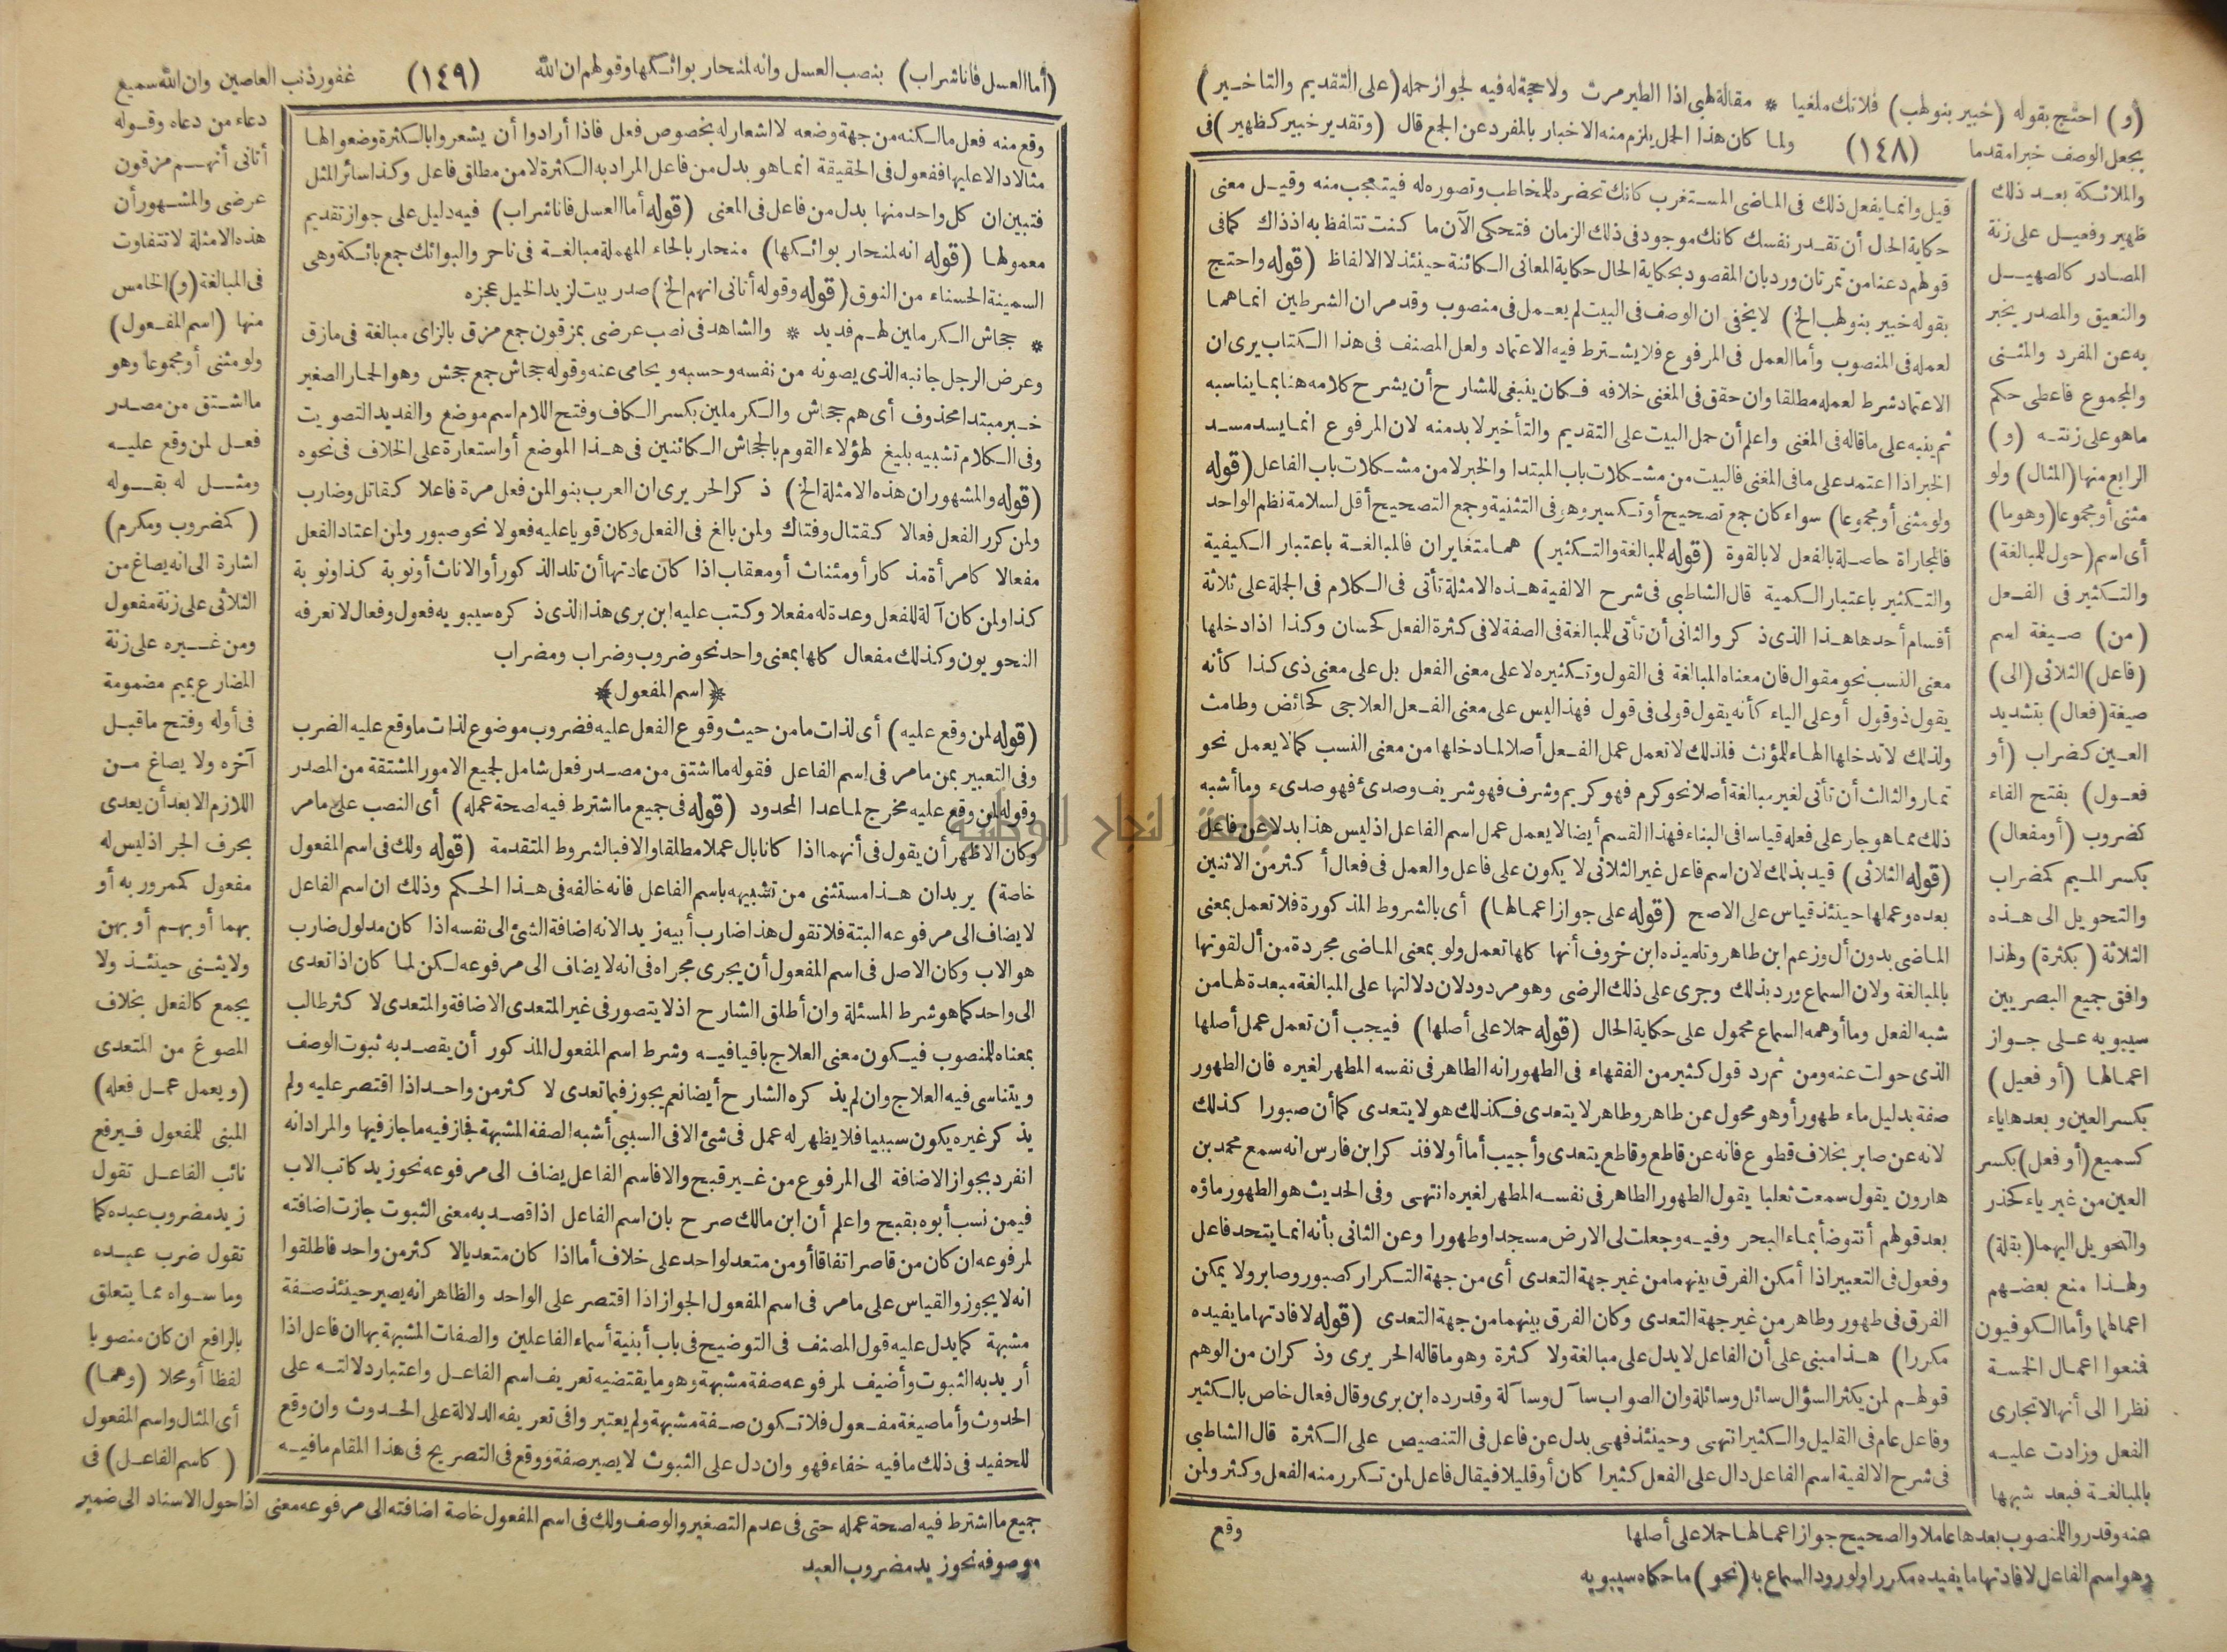 (و) احتج بقوله (خبير بنو لهب) فلا تك ملغيا * مقالة لهبي اذا الطير مرت ولا حجة له فيه لجواز حمله (على التقديم والتاخير)
بجعل الوصف خبرا مقدما (١٤٨) ولما كان هذا الحمل يلزم منه الاخبار بالمفرد عن الجمع قال (وتقدير خبير كظهير) فى
والملائكة بعد ذلك
ظهير وفعيل على زنة
المصادر كالصهيل
والنعيق والمصدر يخبر
به عن المفرد والمثنى
والمجموع فاعطى حكم
ما هو على زنته (و)
الرابع منها (المثال) ولو
مثنى أو مجموعا (وهو ما)
أى اسم (حول للمبالغة)
والتكثير فى الفعل
(من) صيغة اسم
(فاعل) الثلاثى (الى)
صيغة (فعال) بتشديد
العين كضراب (أو
فعول) بفتح الفاء
كضروب (أو مفعال)
بكسر الميم كمضراب
والتحويل الى هذه
الثلاثة (بكثرة) ولهذا
وافق جميع البصريين
سيبويه على جواز
اعمالها (أو فعيل)
بكسر العين وبعدها ياء
كسميع (أو فعل) بكسر
العين من غير ياء كحذر
والتحويل اليهما (بقلة)
ولهذا منع بعضهم
اعمالهما وأما الكوفيون
فمنعوا اعمال الخمسة
نظرا الى أنها لا تجارى
الفعل وزادت عليه
بالمبالغة فبعد شبهها
عنه وقدروا للمنصوب بعدها عاملا والصحيح جواز اعمالها حملا على أصلها
وهو اسم الفاعل لافادتها ما يفيده مكررا ولورود السماع به (نحو) ما حكاه سيبويه
قيل وانما يفعل ذلك فى الماضى المستغرب كانك تحضره للمخاطب وتصوره له فيتعجب منه وقيل معنى
حكاية الحال أن تقدر نفسك كانك موجود فى ذلك الزمان فتحكى الآن ما كنت تتلفظ به اذ ذاك كما فى
قولهم دعنا من تمرتان ورد بان المقصود بحكاية الحال حكاية المعانى الكائنة حينئذ لا الالفاظ (قوله واحتج
بقوله خبير بنو لهب الخ) لا يخفى ان الوصف فى البيت لم يعمل فى منصوب وقد مر ان الشرطين انما هما
لعمله فى المنصوب وأما العمل فى المرفوع فلا يشترط فيه الاعتماد ولعل المصنف فى هذا الكتاب يرى ان
الاعتماد شرط لعمله مطلقا وان حقق فى المغنى خلافه فكان ينبغى للشارح أن يشرح كلامه هنا بما يناسبه
ثم ينبه على ما قاله فى المغنى واعلم أن حمل البيت على التقديم والتأخير لا بد منه لان المرفوع انما يسد مسد
الخبر اذا اعتمد على ما فى المغنى فالبيت من مشكلات باب المبتدا والخبر لا من مشكلات باب الفاعل (قوله
ولو مثنى أو مجموعا) سواء كان جمع تصحيح أو تكسير وهو فى التثنية وجمع التصحيح أقل لسلامة نظم الواحد
فالمجاراة حاصلة بالفعل لا بالقوة (قوله للمبالغة والتكثير) هما متغايران فالمبالغة باعتبار الكيفية
والتكثير باعتبار الكمية قال الشاطبى فى شرح الالفية هذه الامثلة تأتى فى الكلام فى الجملة على ثلاثة
أقسام أحدها هذا الذى ذكر والثانى أن تأتى للمبالغة فى الصفة لا فى كثرة الفعل كحسان وكذا اذا دخلها
معنى النسب نحو مقوال فان معناه المبالغة فى القول وتكثيره لا على معنى الفعل بل على معنى ذى كذا كأنه
يقول ذو قول أو على الياء كأنه يقول قولى فى قول فهذا ليس على معنى الفعل العلاجى كحائض وطامث
ولذلك لا تدخلها الهاء للمؤنث فلذلك لا تعمل عمل الفعل أصلا لما دخلها من معنى النسب كما لا يعمل نحو
تمار والثالث أن تأتى لغير مبالغة أصلا نحو كرم فهو كريم وشرف فهو شريف وصدئ فهو صدىء وما أشبه
ذلك مما هو جار على فعله قياسا فى البناء فهذا القسم أيضا لا يعمل عمل اسم الفاعل اذ ليس هذا بدلا عن فاعل
(قوله الثلاثى) قيد بذلك لان اسم فاعل غير الثلاثى لا يكون على فاعل والعمل فى فعال أكثر من الاثنين
بعده وعملها حينئذ قياس على الاصح (قوله على جواز اعمالها) أى بالشروط المذكورة فلا تعمل بمعنى
الماضى بدون أل وزعم ابن طاهر وتلميذه ابن خروف أنها كلها تعمل ولو بمعنى الماضى مجردة من أل لقوتها
بالمبالغة ولان السماع ورد بذلك وجرى على ذلك الرضى وهو مردود لان دلالتها على المبالغة مبعدة لها من
شبه الفعل وما أوهمه السماع محمول على حكاية الحال (قوله حملا على أصلها) فيجب أن تعمل عمل أصلها
الذى حولت عنه ومن ثم رد قول كثير من الفقهاء فى الطهور انه الطاهر فى نفسه المطهر لغيره فان الطهور
صفة بدليل ماء طهورا وهو محول عن طاهر وطاهر لا يتعدى فكذلك هو لا يتعدى كما أن صبورا كذلك
لانه عن صابر بخلاف قطوع فانه عن قاطع وقاطع يتعدى وأجيب أما أولا فذكر ابن فارس انه سمع محمد بن
هارون يقول سمعت ثعلبا يقول الطهور الطاهر فى نفسه المطهر لغيره انتهى وفى الحديث هو الطهور ماؤه
بعد قولهم أنتوضأ بماء البحر وفيه وجعلت لى الارض مسجدا وطهورا وعن الثانى بأنه انما يتحد فاعل
وفعول فى التعبير اذا أمكن الفرق بينهما من غير جهة التعدى أى من جهة التكرار كصبور وصابر ولا يمكن
الفرق فى طهور وطاهر من غير جهة التعدى وكان الفرق بينهما من جهة التعدى (قوله لافادتها ما يفيده
مكررا) هذا مبنى على أن الفاعل لا يدل على مبالغة ولا كثرة وهو ما قاله الحريرى وذكر ان من الوهم
قولهم لمن يكثر السؤال سائل وسائلة وان الصواب سآل وسآلة وقد رده ابن برى وقال فعال خاص بالكثير
وفاعل عام فى القليل والكثير انتهى وحينئذ فهى بدل عن فاعل فى التنصيص على الكثرة قال الشاطبى
فى شرح الالفية اسم الفاعل دال على الفعل كثيرا كان أو قليلا فيقال فاعل لمن تكرر منه الفعل وكثر ولمن
وقع
(أما العسل فانا شراب) بنصب العسل وانه لمنحار بوائكها وقولهم ان الله (١٤٩) غفور ذنب العاصين وان الله سميع
وقع منه فعل ما لكنه من جهة وضعه لا اشعار له بخصوص فعل فاذا أرادوا أن يشعروا بالكثرة وضعوا لها
مثالا دالا عليها ففعول فى الحقيقة انما هو بدل من فاعل المراد به الكثرة لا من مطلق فاعل وكذا سائر المثل
فتبين ان كل واحد منها بدل من فاعل فى المعنى (قوله أما العسل فانا شراب) فيه دليل على جواز تقديم
معمولها (قوله انه لمنحار بوائكها) منحار بالحاء المهملة مبالغة فى ناحر والبوائك جمع بائكة وهى
السمينة الحسناء من النوق (قوله وقوله أتانى انهم الخ) صدر بيت لزيد الخيل عجزه
* جحاش الكرملين لهم فديد * والشاهد فى نصب عرضى بمزقون جمع مزق بالزاى مبالغة فى مازق
وعرض الرجل جانبه الذى يصونه من نفسه وحسبه ويحامى عنه وقوله جحاش جمع جحش وهو الحمار الصغير
خبر مبتدا محذوف أى هم جحاش والكرملين بكسر الكاف وفتح اللام اسم موضع والفديد التصويت
وفى الكلام تشبيه بليغ لهؤلاء القوم بالجحاش الكائنين فى هذا الموضع أو استعارة على الخلاف فى نحوه
(قوله والمشهور ان هذه الامثلة الخ) ذكر الحريرى ان العرب بنوا لمن فعل مرة فاعلا كقاتل وضارب
ولمن كرر الفعل فعالا كقتال وفتاك ولمن بالغ فى الفعل وكان قويا عليه فعولا نحو صبور ولمن اعتاد الفعل
مفعالا كامرأة مذكار أو مئناث أو معقاب اذا كان عادتها أن تلد الذكور أو الاناث أو نوبة كذا ونوبة
كذا ولمن كان آلة للفعل وعدة له مفعلا وكتب عليه ابن برى هذا الذى ذكره سيبويه فعول وفعال لا تعرفه
النحويون وكذلك مفعال كلها بمعنى واحد نحو ضروب وضراب ومضراب
﴿اسم المفعول﴾
(قوله لمن وقع عليه) أى لذات ما من حيث وقوع الفعل عليه فضروب موضوع لذات ما وقع عليه الضرب
وفى التعبير بمن ما مر فى اسم الفاعل فقوله ما اشتق من مصدر فعل شامل لجميع الامور المشتقة من المصدر
وقوله لمن وقع عليه مخرج لما عدا المحدود (قوله فى جميع ما اشترط فيه لصحة عمله) أى النصب على ما مر
وكان الاظهر أن يقول فى أنهما اذا كانا بال عملا مطلقا والا فبالشروط المتقدمة (قوله ولك فى اسم المفعول
خاصة) يريد ان هذا مستثنى من تشبيهه باسم الفاعل فانه خالفه فى هذا الحكم وذلك ان اسم الفاعل
لا يضاف الى مرفوعه البتة فلا تقول هذا ضارب أبيه زيدا لانه اضافة الشئ الى نفسه اذا كان مدلول ضارب
هو الاب وكان الاصل فى اسم المفعول أن يجرى مجراه فى انه لا يضاف الى مرفوعه لكن لما كان اذا تعدى
الى واحد كما هو شرط المسئلة وان أطلق الشارح اذ لا يتصور فى غير المتعدى الاضافة والمتعدى لا كثر طالب
بمعناه للمنصوب فيكون معنى العلاج باقيا فيه وشرط اسم المفعول المذكور أن يقصد به ثبوت الوصف
ويتناسى فيه العلاج وان لم يذكره الشارح أيضا نعم يجوز فيما تعدى لاكثر من واحد اذا اقتصر عليه ولم
يذكر غيره يكون سببيا فلا يظهر له عمل فى شئ الا فى السببى أشبه الصفة المشبهة فجاز فيه ما جاز فيها والمراد انه
انفرد بجواز الاضافة الى المرفوع من غير قبح والا فاسم الفاعل يضاف الى مرفوعه نحو زيد كاتب الاب
فيمن نسب أبوه بقبح واعلم أن ابن مالك صرح بان اسم الفاعل اذا قصد به معنى الثبوت جازت اضافته
لمرفوعه ان كان من قاصر اتفاقا أو من متعد لواحد على خلاف أما اذا كان متعديا لاكثر من واحد فاطلقوا
انه لا يجوز والقياس على ما مر فى اسم المفعول الجواز اذا اقتصر على الواحد والظاهر انه يصير حينئذ صفة
مشبهة كما يدل عليه قول المصنف فى التوضيح فى باب أبنية أسماء الفاعلين والصفات المشبهة بها ان فاعل اذا
أريد به الثبوت وأضيف لمرفوعه صفة مشبهة وهو ما يقتضيه تعريف اسم الفاعل واعتبار دلالته على
الحدوث وأما صيغة مفعول فلا تكون صفة مشبهة ولم يعتبروا فى تعريفه الدلالة على الحدوث وان وقع
للحفيد فى ذلك ما فيه خفاء فهو وان دل على الثبوت لا يصير صفة ووقع فى التصريح فى هذا المقام ما فيه
دعاء من دعاه وقوله
أتانى أنهم مزقون
عرضى والمشهور أن
هذه الامثلة لا تتفاوت
فى المبالغة (و) الخامس
منها (اسم المفعول)
ولو مثنى أو مجموعا وهو
ما اشتق من مصدر
فعل لمن وقع عليه
ومثل له بقوله
(كمضروب ومكرم)
اشارة الى انه يصاغ من
الثلاثى على زنة مفعول
ومن غيره على زنة
المضارع بميم مضمومة
فى أوله وفتح ما قبل
آخره ولا يصاغ من
اللازم الا بعد أن يعدى
بحرف الجر اذ ليس له
مفعول كممرور به أو
بهما أو بهم أو بهن
ولا يثنى حينئذ ولا
يجمع كالفعل بخلاف
المصوغ من المتعدى
(ويعمل عمل فعله)
المبنى للمفعول فيرفع
نائب الفاعل تقول
زيد مضروب عبده كما
تقول ضرب عبده
وما سواه مما يتعلق
بالرافع ان كان منصوبا
لفظا أو محلا (وهما)
أى المثال واسم المفعول
(كاسم الفاعل) فى
جميع ما اشترط فيه لصحة عمله حتى فى عدم التصغير والوصف ولك فى اسم المفعول خاصة اضافته الى مرفوعه معنى اذا حول الاسناد الى ضمير
موصوفه نحو زيد مضروب العبد
جامعة النجاح الوطنية